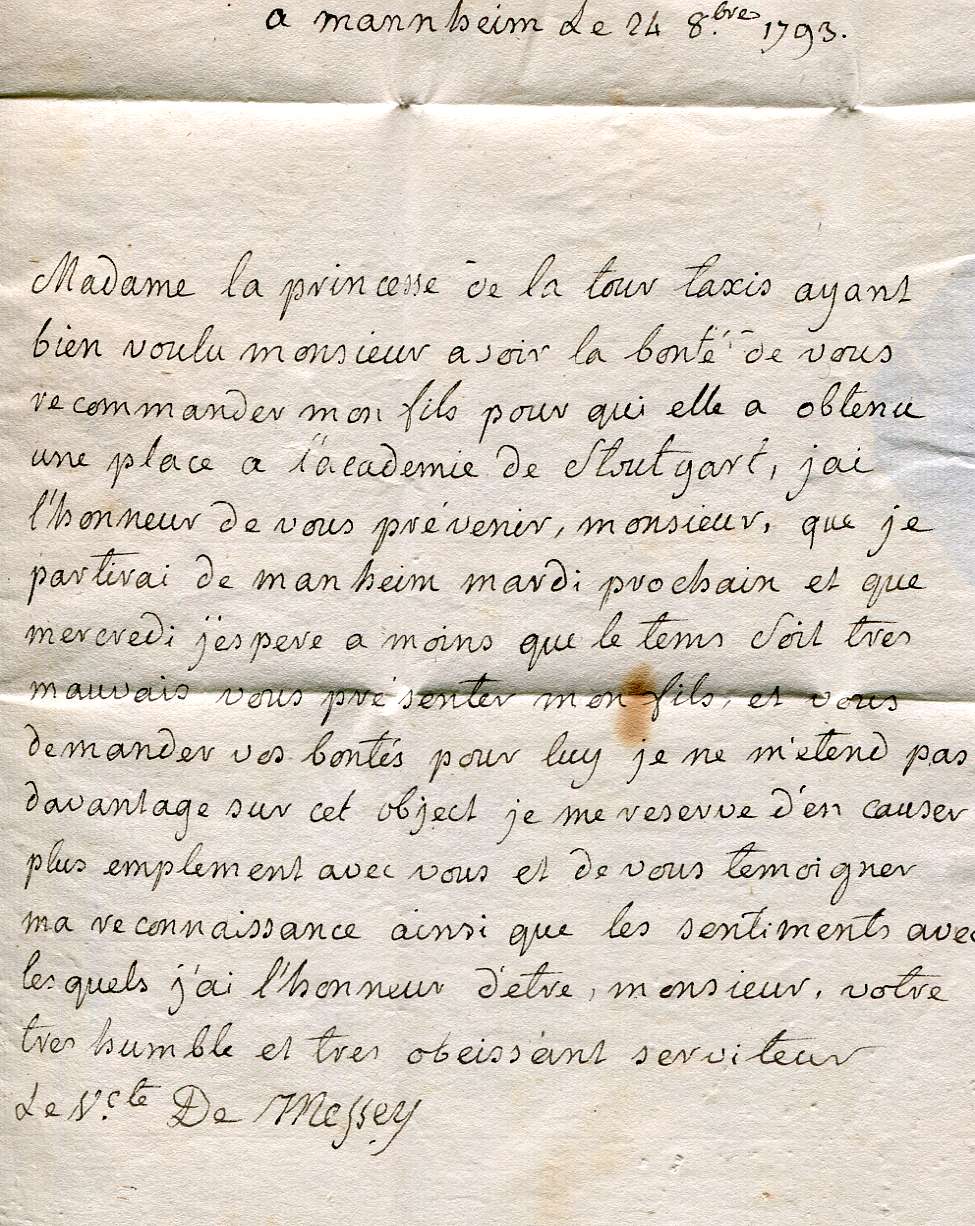 a mannheim Le 24 8.bre 1793.
Madame la princesse de la tour taxis ayant
bien voulu monsieur avoir la bonté de vous
recommander mon fils pour qui elle a obtenu
une place a l'academie de Stoutgart, jai
l'honneur de vous prévenir, monsieur, que je
partirai de manheim mardi prochain et que
mercredi j'espere a moins que le tems soit tres
mauvais vous présenter mon fils, et vous
demander vos bontés pour luy je ne m'etend pas
davantage sur cet object je me reserve d'en causer
plus emplement avec vous et de vous temoigner
ma reconnaissance ainsi que les sentiments avec
lesquels j'ai l'honneur d'etre, monsieur, votre
tres humble et tres obeissant serviteur
Le V.cte De Messey